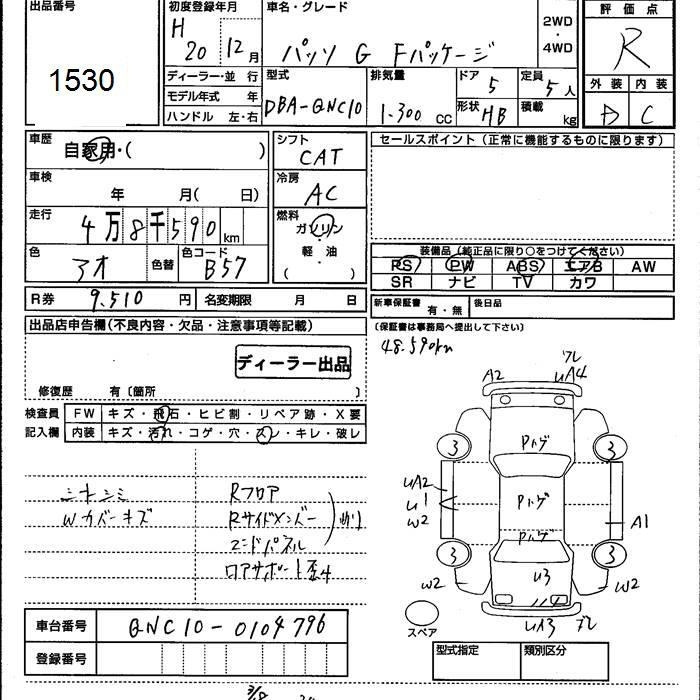 出品番号
1530
初度登録年月
H 20 12月
車名・グレード
パッソ G Fパッケージ
2WD
・
4WD
評価点
R
外装 内装
D C
ディーラー・並行
モデル年式 年
ハンドル 左・右
型式
DBA-QNC10
排気量
1.300 cc
ドア
5
定員
5人
形状
HB
積載
kg
車歴
自家用・( )
車検
年 月( 日)
走行
4万8千590km
色
アオ
色替
色コード
B57
シフト
CAT
冷房
AC
燃料
ガソリン
・
軽・油
( )
セールスポイント(正常に機能するものに限ります)
装備品(純正品に限り○をつけてください)
PS PW ABS エアB AW
SR ナビ TV カワ
R券 9.510 円 名変期限 月 日
新車保証書 有・無 後日品
(保証書は事務局へ提出して下さい)
48.590km
出品店申告欄(不良内容・欠品・注意事項等記載)
ディーラー出品
修復歴 有〔箇所 〕
検査員 FW キズ・飛石・ヒビ割・リペア跡・X要
記入欄 内装 キズ・汚れ・コゲ・穴・スレ・キレ・破レ
シートシミ
Wカバーキズ
Rフロア
Rサイドメンバー
エンドパネル
ロアサポート歪み
A2
ワレ
uA4
3
3
Pハゲ
uA2
u1
w2
Pハゲ
A1
Pハゲ
3
3
u3
w2
w2
uA3
スペア
車台番号 QNC10-0104796
登録番号
型式指定
類別区分